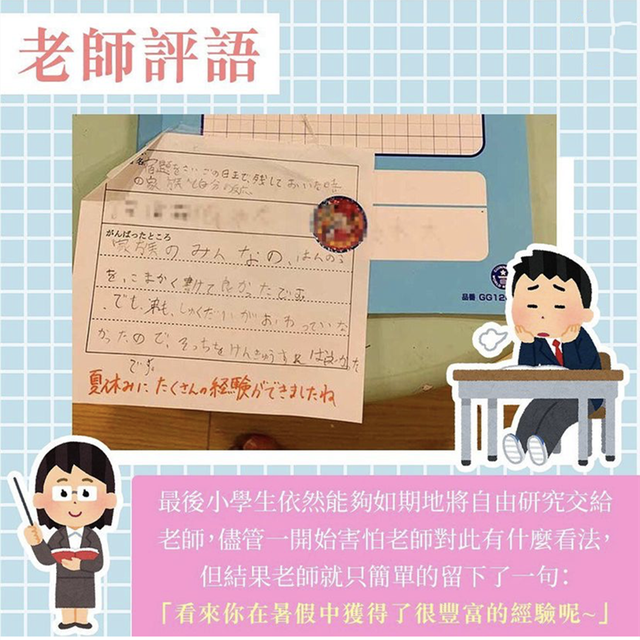 老師評語
宿題をさいごの日まで、残しておいた時
の家族と自分の反応
がんばったところ
家族のみんなの、はんのう
を、こまかく書けて良かったです。
でも、私も、しゅくだいがおわっていな
かったので、そっちをけんきゅうすればよかった
です。
夏休みに たくさんの経験ができましたね
品番 GG12
最後小學生依然能夠如期地將自由研究交給
老師，儘管一開始害怕老師對此有什麼看法，
但結果老師就只簡單的留下了一句：
「看來你在暑假中獲得了很豐富的經驗呢~」